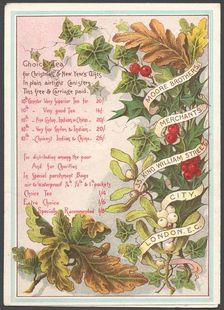 Choice Tea
for Christmas & New Year's Gifts
In plain airtight Canisters
Tins free & Carriage paid.
Very Superior Tea for
Very good Tea
Fine Ceylon, Indian or China
Very Fine Ceylon & Indian
Choicest Indian & China
For distributing among the poor
And for Charities
In Special parchment Bags
air & waterproof packets
Choice Tea 1/4
Extra Choice 1/6
Specially Recommended 1/8
MOORE BROTHERS,
TEA MERCHANTS,
KING WILLIAM STREET,
CITY,
LONDON, E.C.